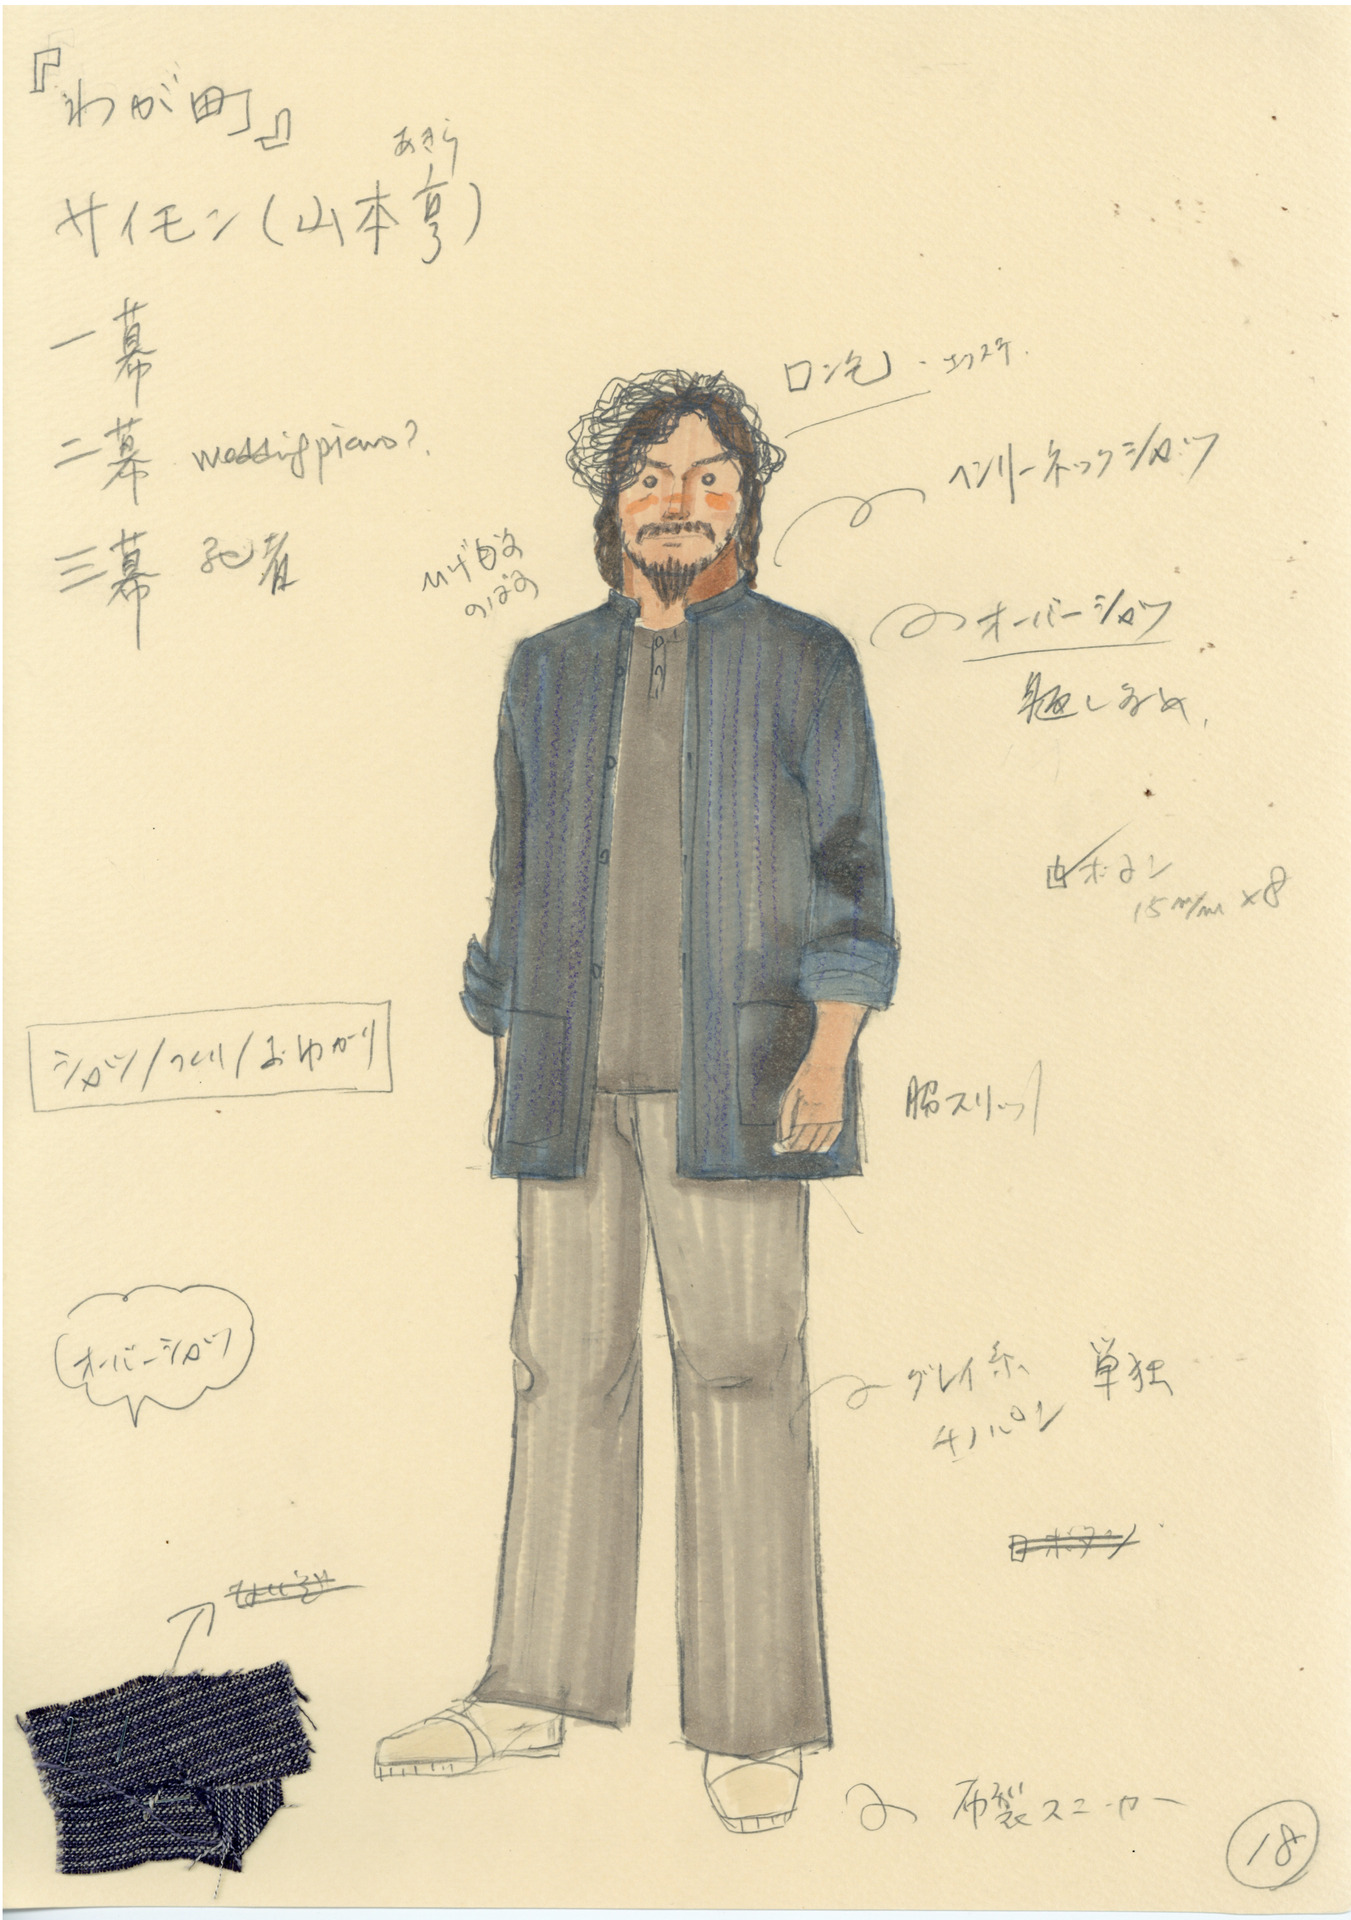 『わが町』
あきら
サイモン(山本亨)
一幕
二幕 wedding piano?
三幕 死者
ロン毛・エクステ.
ヘンリーネックシャツ
ヒゲ
のばす
オーバーシャツ
ボタン
15m/m ×8
シャツ/つくり/おわかり
脇スリット
オーバーシャツ
グレイ系 単独
チノパン
ボタン
布製スニーカー
18